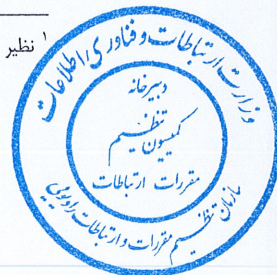 ۱ نظیر
وزارت ارتباطات و فناوری اطلاعات
دبیرخانه
کمیسیون تنظیم
مقررات ارتباطات
سازمان تنظیم مقررات و ارتباطات رادیویی